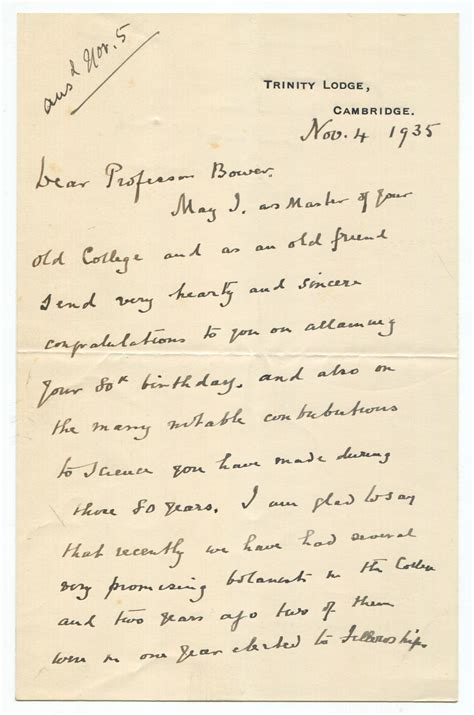 ansd Nov. 5
TRINITY LODGE,
CAMBRIDGE.
Nov. 4 1935
Dear Professor Bower.
May I, as Master of your
old College and as an old friend
send very hearty and sincere
congratulations to you on attaining
your 80th birthday, and also on
the many notable contributions
to Science you have made during
those 80 years. I am glad to say
that recently we have had several
very promising botanists in the College
and two years ago two of them
were in one year elected to Fellowships